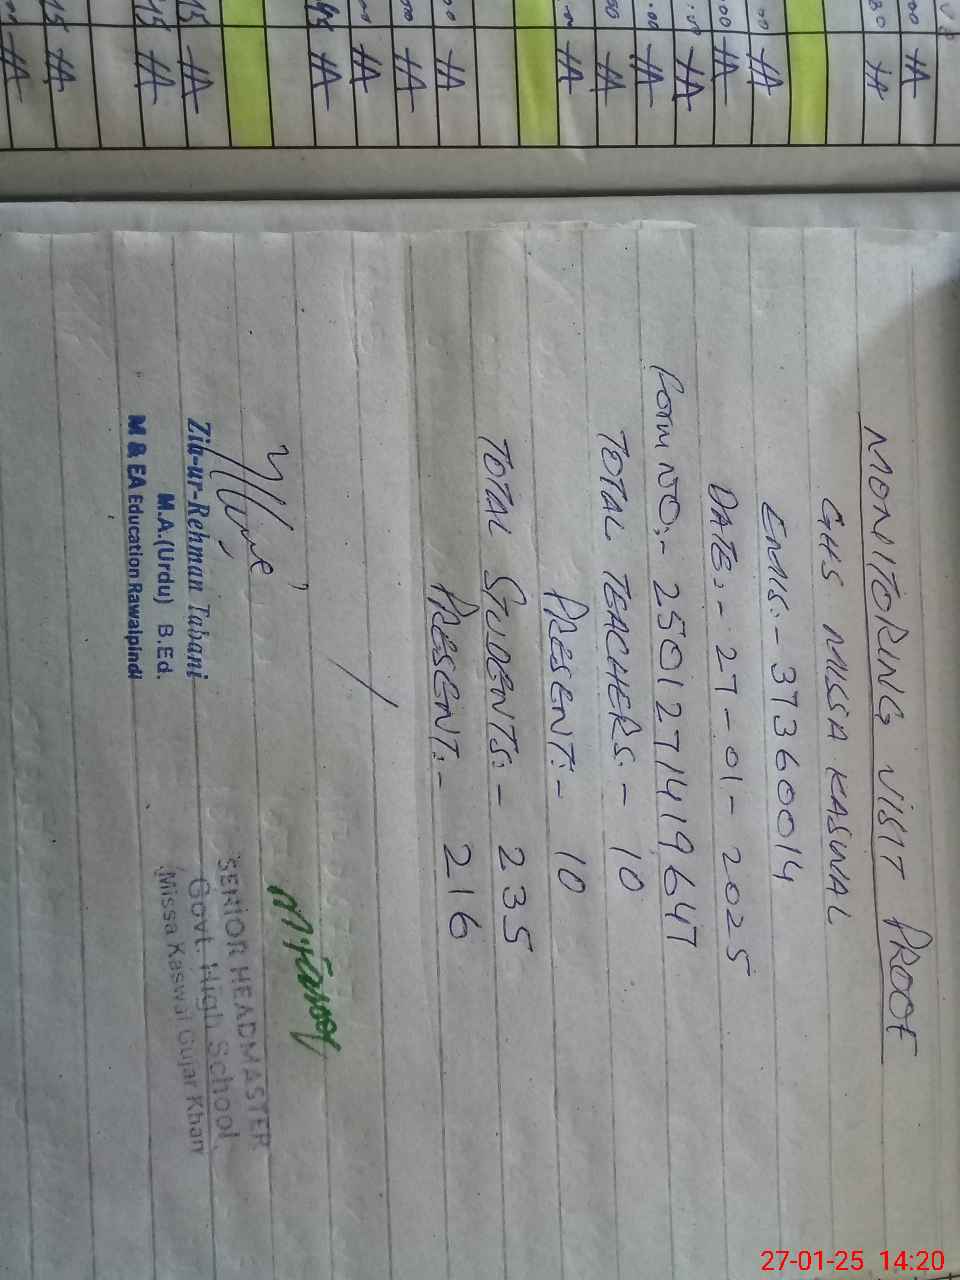 MONITORING VISIT PROOF
GHS MISSA KASWAL
EMIS:- 37360014
DATE:- 27-01-2025
Form NO:- 2501271419647
TOTAL TEACHERS:- 10
PRESENT:- 10
TOTAL STUDENTS:- 235
PRESENT:- 216
Zia-ur-Rehman Tabani
M.A.(Urdu) B.Ed.
M & EA Education Rawalpindi
SENIOR HEADMASTER
Govt. High School
Missa Kaswal Gujar Khan
27-01-25 14:20